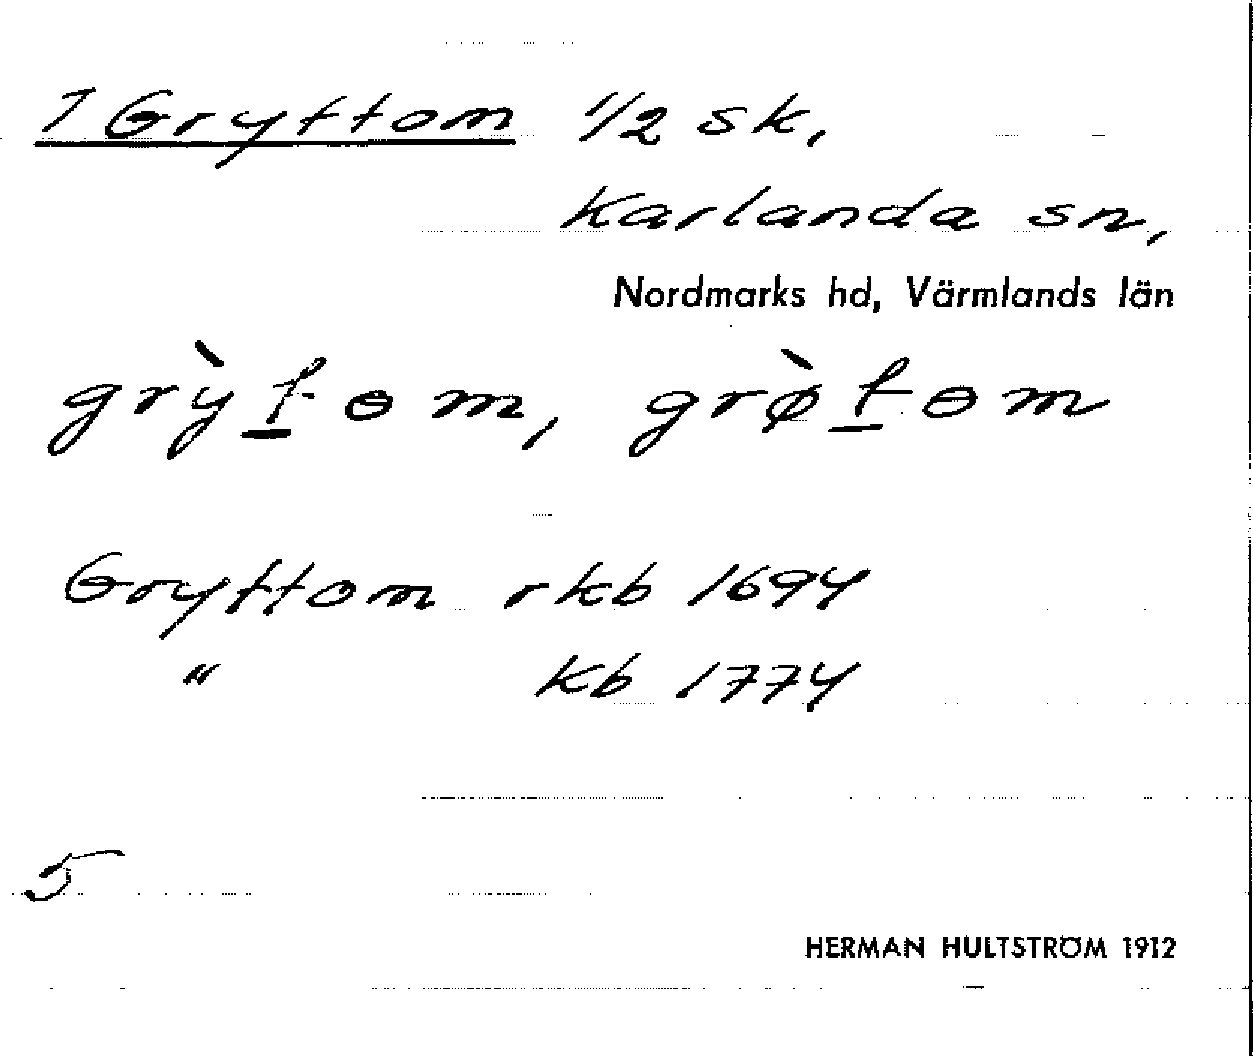 1 Gryttom 1/2 sk,
Karlanda sn,
Nordmarks hd, Värmlands län
grỳt̲ɵm, grø̀t̲ɵm
Gryttom rkb 1694
" kb 1774
5
HERMAN HULTSTRÖM 1912